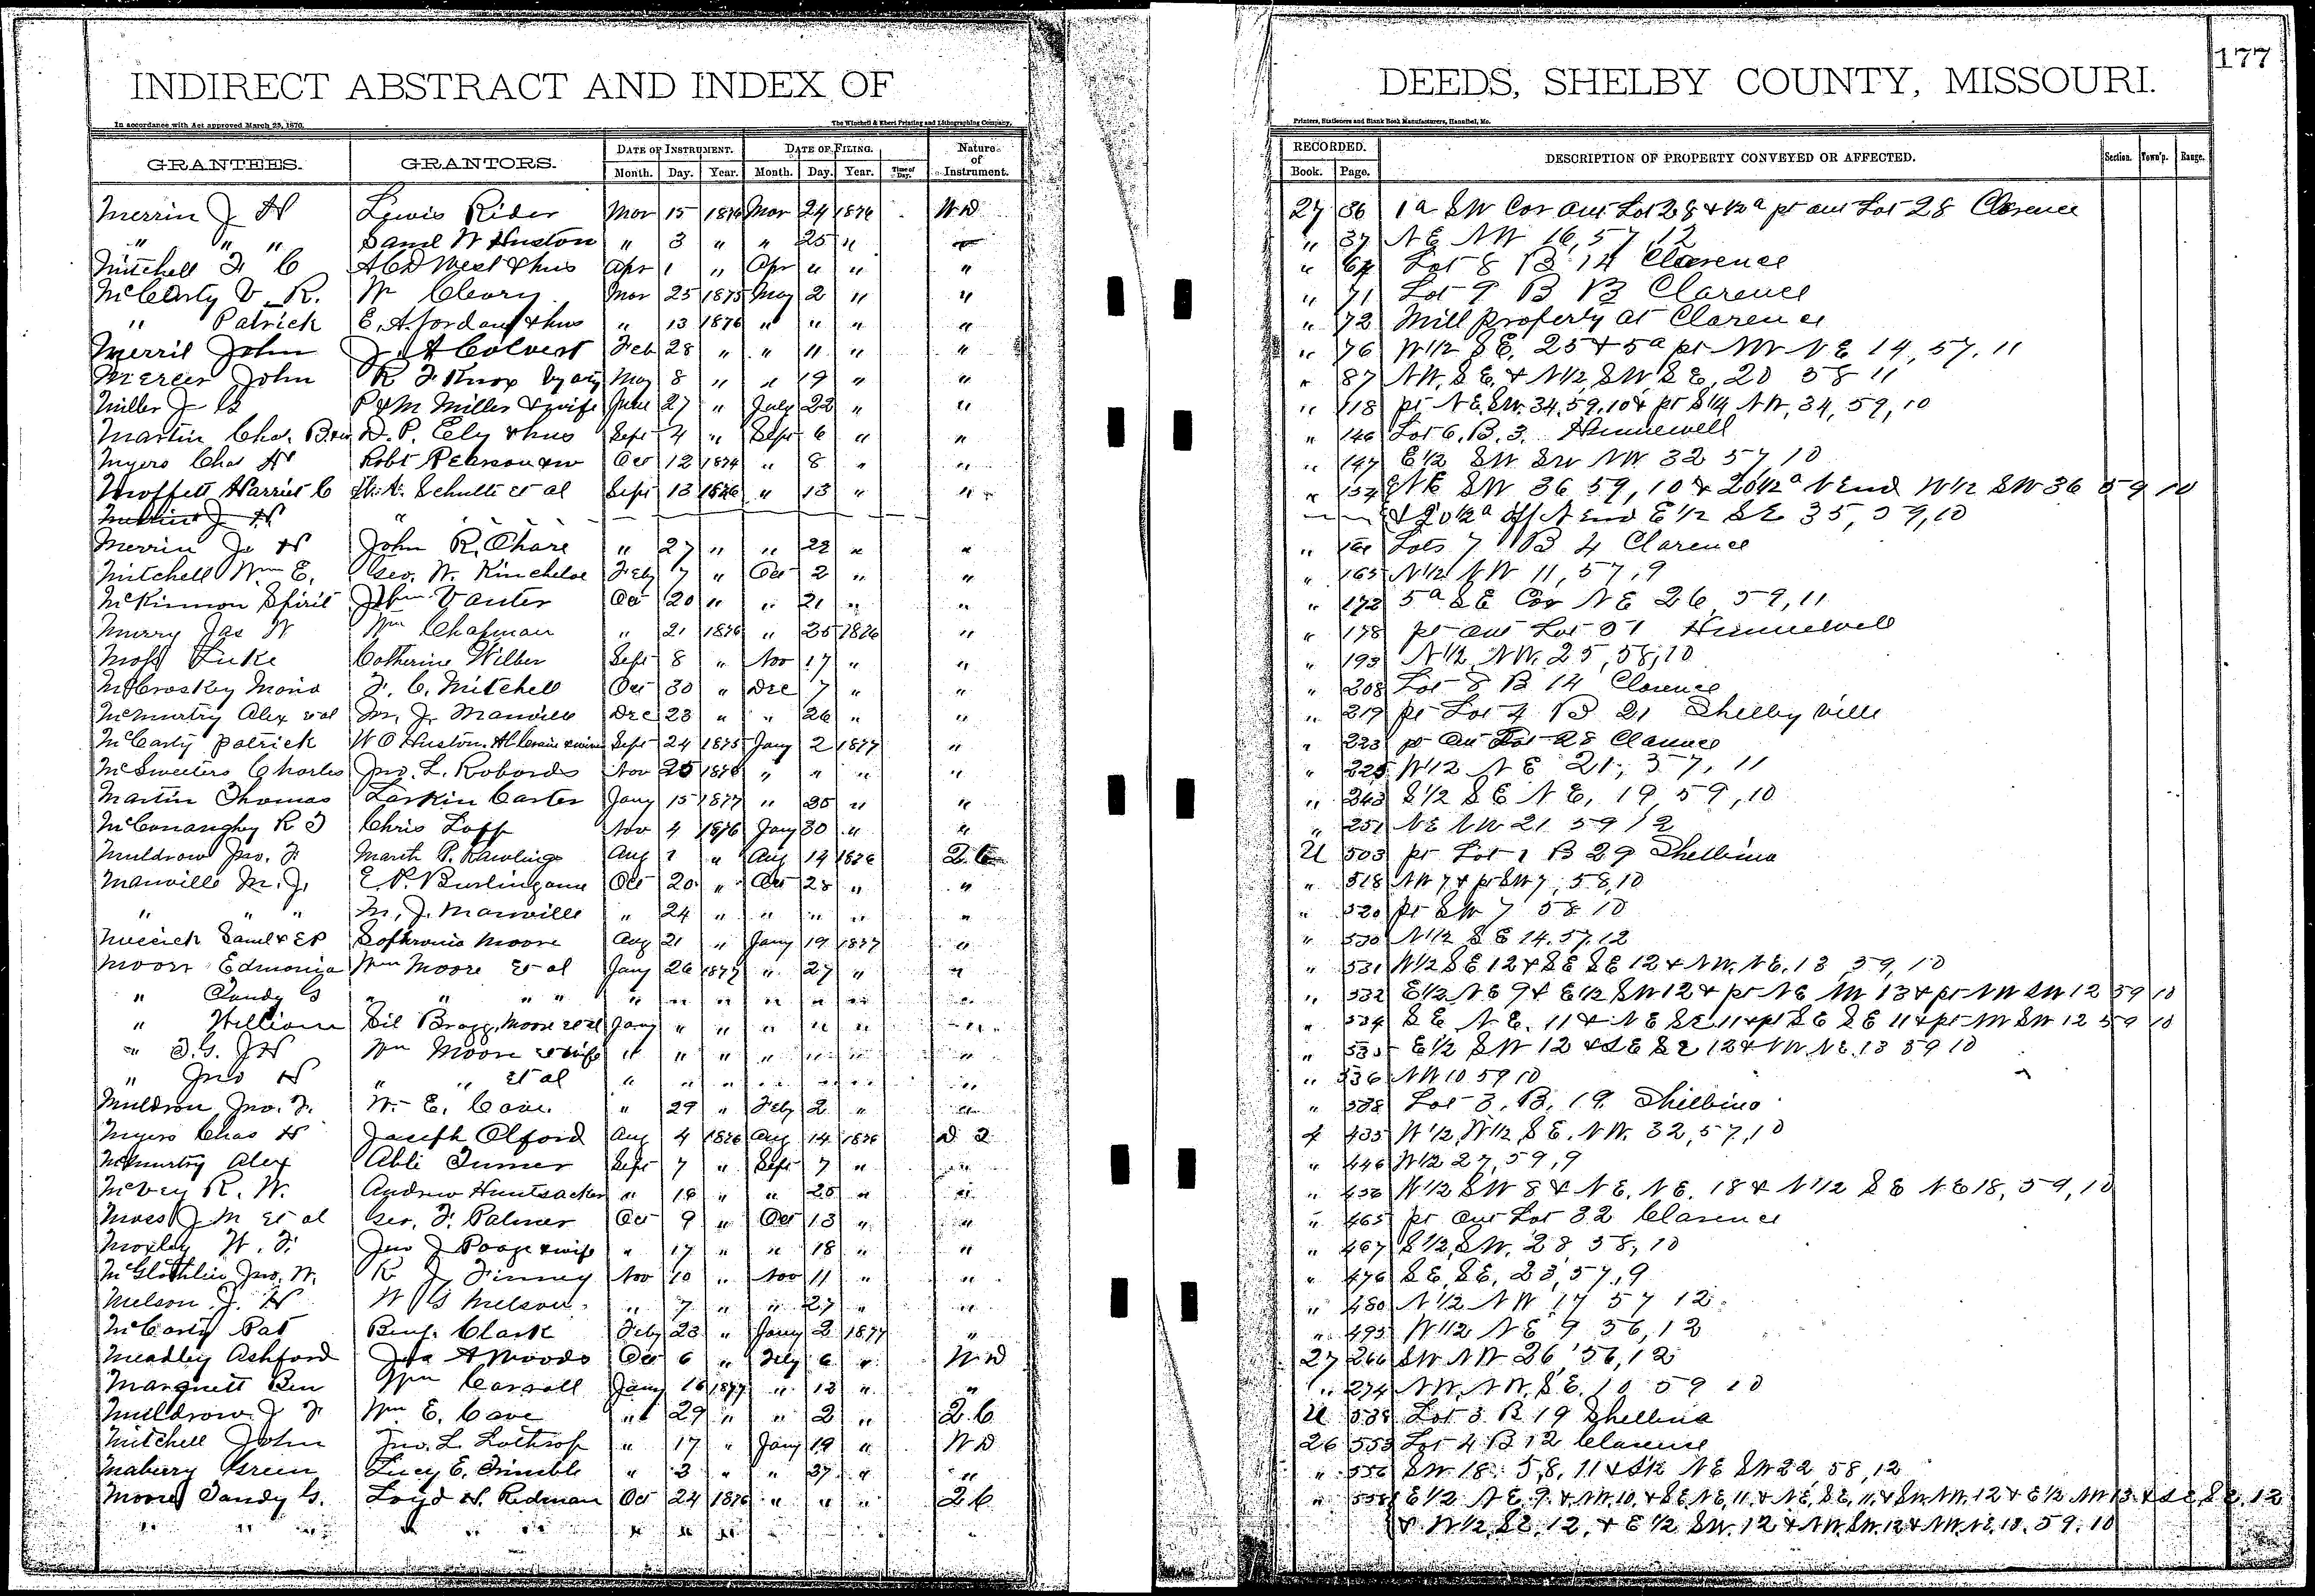 177
INDIRECT ABSTRACT AND INDEX OF DEEDS, SHELBY COUNTY, MISSOURI.
In accordance with Act approved March 25, 1870. The Winchell & Ebert Printing and Lithographing Company, Printers, Stationers and Blank Book Manufacturers, Hannibal, Mo.
GRANTEES. GRANTORS. DATE OF INSTRUMENT. DATE OF FILING. Nature of Instrument. RECORDED. DESCRIPTION OF PROPERTY CONVEYED OR AFFECTED. Section. Town'p. Range.
Month. Day. Year. Month. Day. Year. Time of Day. Book. Page.
Merrin J H Lewis Rider Mar 15 1876 Mar 24 1876 W D 27 36 1a SW Cor out Lot 28 & ½a pt out Lot 28 Clarence
" " " Saml W Huston " 3 " " 25 " " 37 NE NW 16, 57, 12
Mitchell F C A C D West & hus Apr 1 " Apr " " " " 64 Lot 8 B 14 Clarence
McCarty V. R. W Cleary Mar 25 1875 May 2 " " " 71 Lot 9 B 13 Clarence
" Patrick E. A. Jordan & hus " 13 1876 " " " " " 72 Mill property at Clarence
Merril John J. A Colvert Feb 28 " " 11 " " " 76 W½ SE, 25 & 5a pt NW NE 14, 57, 11
Mercer John R F Knox by atty May 8 " " 19 " " " 87 NW, SE, & N½ SW, SE, 20 58 11
Miller J B P & M Miller & wife June 27 " July 22 " " " 118 pt NE, SW, 34, 59, 10 & pt S¼ NW, 34, 59, 10
Martin Chas. D. P. Ely & hus Sept 4 " Sept 6 " " " 146 Lot 6, B. 3. Hunnewell
Myers Chas H Robt Pearson & w Oct 12 1874 " 8 " " " 147 E½ SW SW NW 32 57 10
Moffett Harriet C H. A. Schulti et al Sept 13 1876 " 13 " " " 157 NE SW 36 59, 10 & 20½a N End W½ SW 36 59 10
Merrin J H & 20½a off N End E½ SE 35, 59, 10
Merrin J. H John R. Chare " 27 " " 22 " " " Lots 7 B 4 Clarence
Mitchell Wm E. Geo. W. Kincheloe Feby 7 " Oct 2 " " " 165 N½ NW 11, 57, 9
McKinnon Spirit John Vanter Oct 20 " " 21 " " " 172 5a SE Cor NE 26, 59, 11
Murry Jas W Wm Chapman " 21 1876 " 25 1876 " " 178 pt out Lot 51 Hunnewell
Moss Luke Catherine Wilber Sept 8 " Nov 17 " " " 193 N½ NW, 25, 58, 10
McCroskey Maria F. C. Mitchell Oct 30 " Dec 7 " " " 208 Lot 8 B 14 Clarence
McMurtry Alex et al M. J. Manville Dec 23 " " 26 " " " 219 pt Lot 4 B 21 Shelbyville
McCarty Patrick W O Huston. Sept 24 1875 Jany 2 1877 " " 223 pt out Lot 28 Clarence
McSweeters Charles Jno. L. Robards Nov 25 1876 " " " " " 225 W½ NE 21, 57, 11
Martin Thomas Larkin Carter Jany 15 1877 " 25 " " " 243 S½ SE NE, 19, 59, 10
McConaughy R T Chris Loff Nov 4 1876 Jany 30 " " " 251 NE NW 21 59 12
Muldrow Jno. F. March P. Rawlings Aug 1 " Aug 14 1876 2 C U 503 pt Lot 1 B 29 Shelbina
Manville M. J. E P. Burlingame Oct 20 " Oct 28 " " " 518 NW 7 & pt SW 7, 58, 10
" " " M. J. Manville " 24 " " " " " " 520 pt SW 7 58 10
Saml & E P Sophronia Moore Aug 21 " Jany 19 1877 " " 530 N½ SE 14, 57, 12
Moore Edmonia Wm Moore et al Jany 26 1877 " 27 " " " 531 W½ SE 12 & SE SE 12 & NW, NE, 13 59, 10
" Tandy G " " " " " " " " " " " " 532 E½ NE 9 & E½ SW 12 & pt NE NW 13 & pt NW SW 12 59 10
" William Sil Bragg, Moore et al Jany " " " " " " " 534 SE NE, 11 & NE SE 11 & pt SE SE 11 & pt NW SW 12 59 10
" T. G. J H Wm Moore & wife " " " " " " " " 535 E½ SW 12 & SE SE 12 & NW, NE, 13 59 10
" Jno H " " et al " " " " " " " " 536 NW 10 59 10
Muldrow Jno. F. W. E. Cave " 29 " Feby 2 " " " 538 Lot 3, B. 19 Shelbina
Myers Chas H Joseph Olford Aug 4 1876 Aug 14 1876 4 435 W½, W½, SE, NW, 32, 57, 10
McMurtry Alex Abli Turner Sept 7 " Sept 7 " " " 446 W½ 27, 59, 9
McVey R. W. Andrew Huntsacker " 18 " " 25 " " " 456 W½ SW 8 & NE, NE, 18 & N½ SE NE 18, 59, 10
Moss J M et al Geo. F. Palmer Oct 9 " Oct 13 " " " 465 pt out Lot 32 Clarence
Moxley W. F. Jno J Poage & wife " 17 " " 18 " " " 467 S½, SW, 28, 58, 10
McGlothlin Jno. W. R J Finney Nov 10 " Nov 11 " " " 476 SE, SE, 23, 57, 9
Melson J. H W G Melson " 7 " " 27 " " " 480 N½ NW 17 57 12
McCarty Pat Benj. Clark Feby 23 " Jany 2 1877 " " 495 W½ NE 9 56, 12
Meadley Ashford Jno A Woods Oct 6 " Feby 6 " W D 27 266 SW NW 26, 56, 12
Marquett Ben Wm Carroll Jany 16 1877 " 12 " " " 274 NW, NW, SE, 10 59 10
Muldrow J F Wm E. Cave " 29 " " 2 " 2 C U 538 Lot 3 B 19 Shelbina
Mitchell John Jno. L. Lothrop " 17 " Jany 19 " W D 26 553 Lot 4 B 12 Clarence
Maberry Green Lucy E. Trimble " 3 " " 27 " " " 556 SW 18, 58, 11 & NE SW 22 58, 12
Moore Tandy G. Loyd H. Redman Oct 24 1876 " " " 2 C " 558 E½ NE, 9, & NW, 10, & SE, NE, 11, & NE, SE, 11, & SW, NW, 12 & E½ NW 13 & SE, SE, 12
" " " " " " " " " & W½, SE, 12, & E½ SW, 12 & NW, SW, 12 & NW, NE, 13, 59, 10